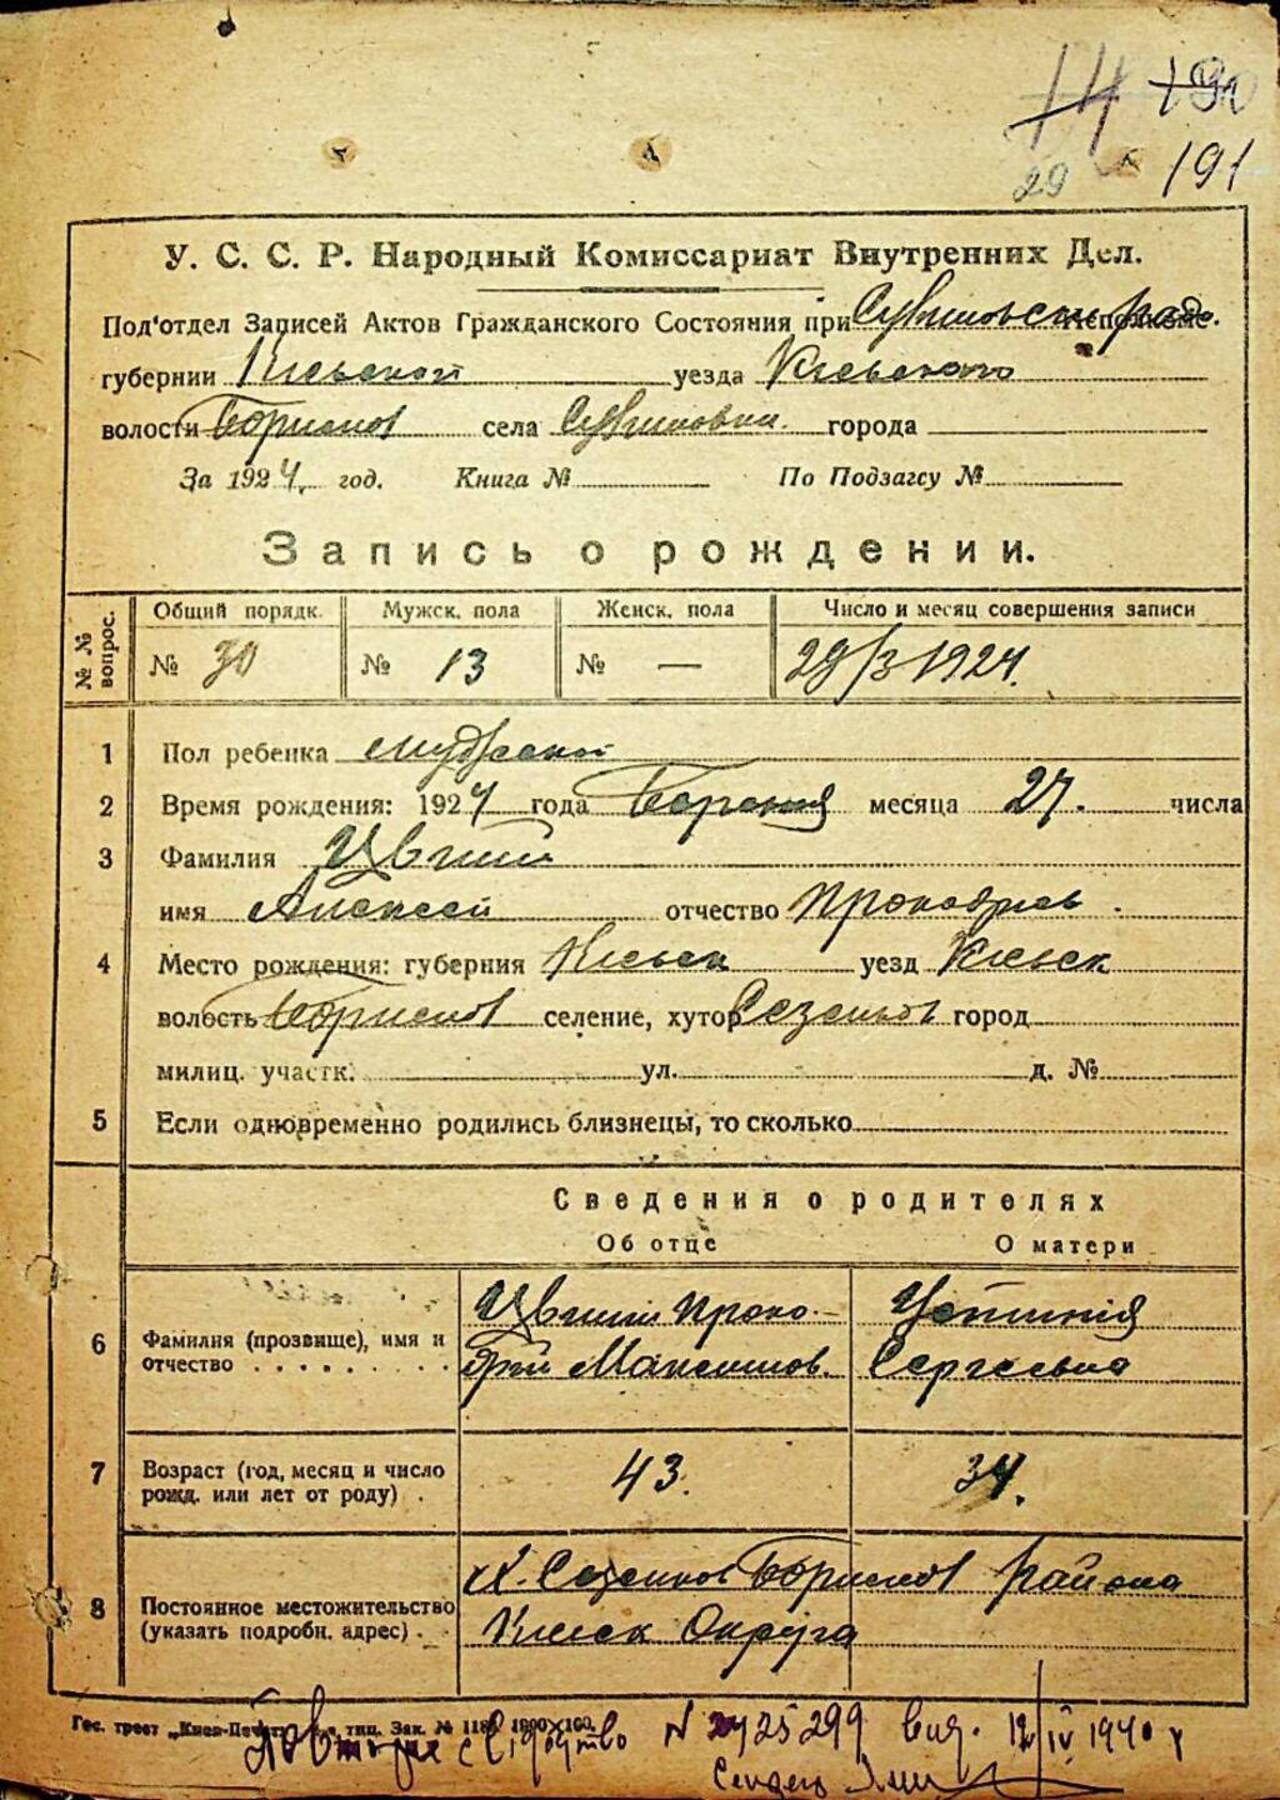 14 190
29 191
У. С. С. Р. Народный Комиссариат Внутренних Дел.
Под'отдел Записей Актов Гражданского Состояния при
губернии Киевской уезда Киевского
волости села города
За 1924 год. Книга № По Подзагсу №
Запись о рождении.
№№ вопрос. Общий порядк. Мужск. пола Женск. пола Число и месяц совершения записи
№ 30 № 13 № — 29/3 1924.
1 Пол ребенка мужской
2 Время рождения: 1924 года месяца 27. числа
3 Фамилия
имя Алексей отчество
4 Место рождения: губерния Киевск уезд Киевск
волость селение, хутор город
милиц. участк. ул. д. №
5 Если одновременно родились близнецы, то сколько
Сведения о родителях
Об отце О матери
6 Фамилия (прозвище), имя и отчество Устиния
Максимов. Сергеевна
7 Возраст (год, месяц и число рожд. или лет от роду) 43. 34.
8 Постоянное местожительство (указать подробн. адрес) района
Киевск Округа
Гос. трест „Киев-Печать" тиц. Зак. № 118
Повторне свідоцтво N 2425299 вид. 12/IV 1940 р